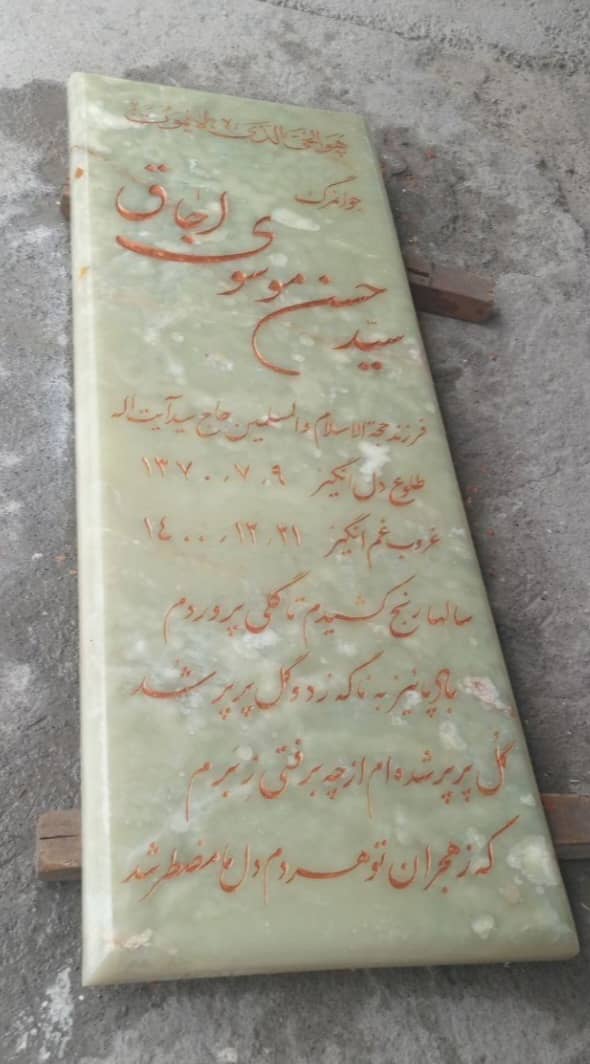 هو الحی الذی لا یموت
جوانمرگ
سید حسن موسوی اجاق
فرزند حجة الاسلام والمسلمین حاج سید آیت اله
طلوع دل انگیز ۱۳۷۰٫۷٫۹
غروب غم انگیز ۱۴۰۰٫۱۲٫۲۱
سالها رنج کشیدم تا گلی پروردم
باد پائیز به ناگه زد و گل پرپر شد
گل پرپر شده ام از چه برفتی ز برم
که ز هجران تو هر دم دل ما مضطر شد